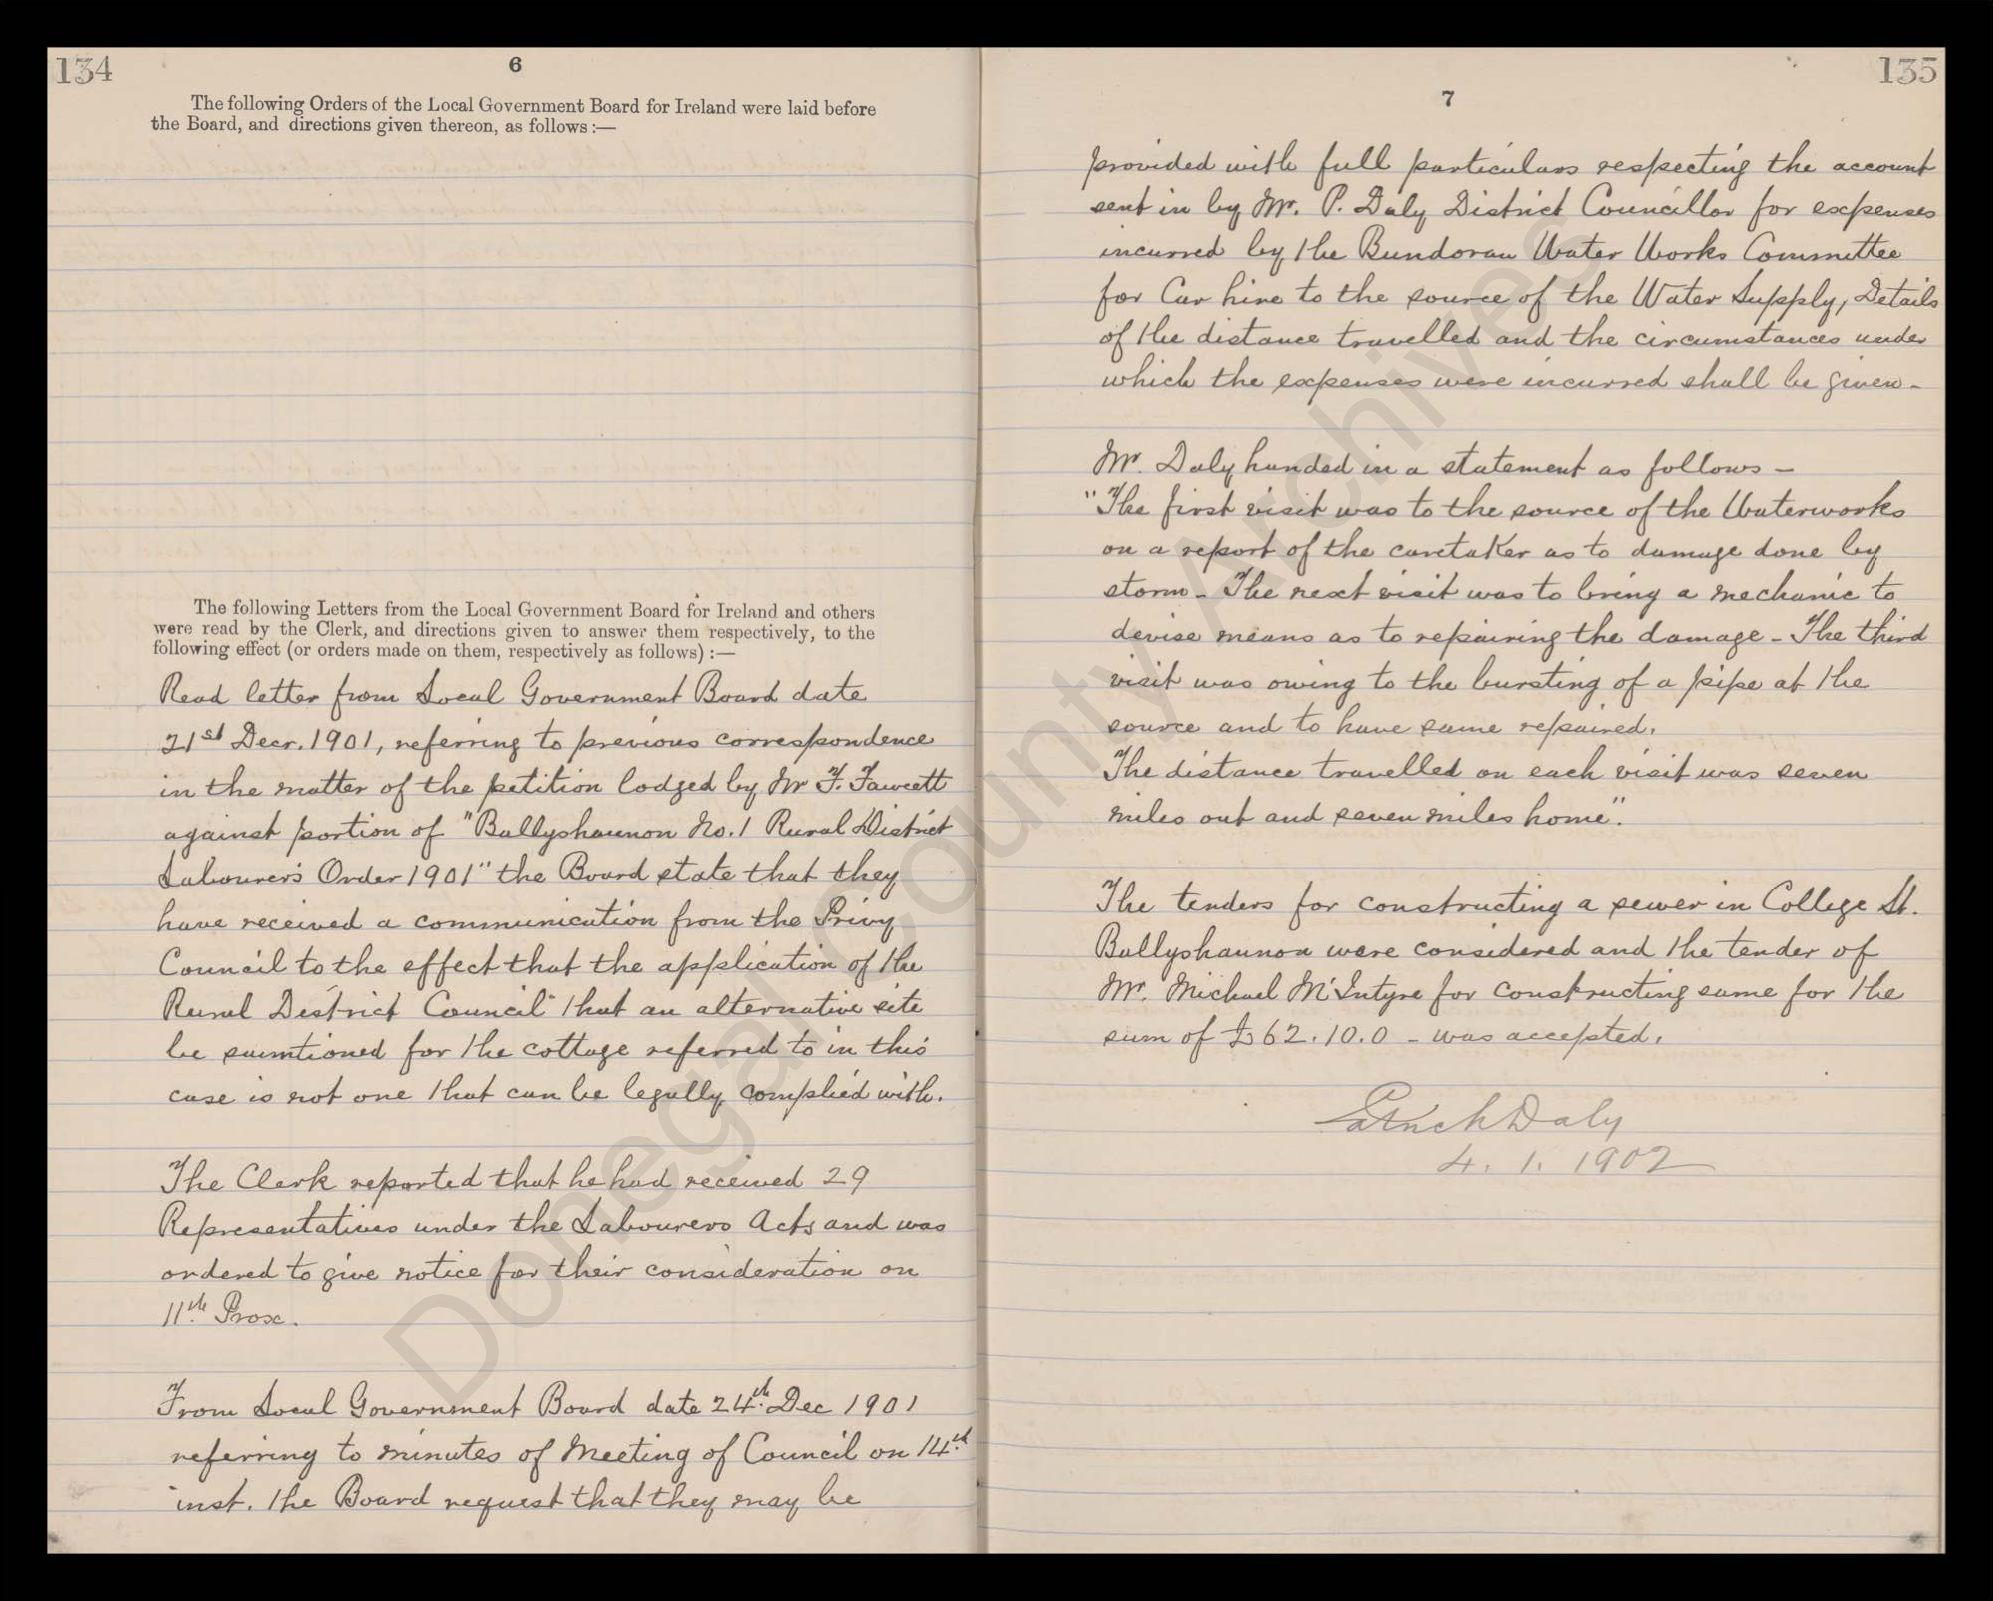 134
6
The following Orders of the Local Government Board for Ireland were laid before
the Board, and directions given thereon, as follows :—
The following Letters from the Local Government Board for Ireland and others
were read by the Clerk, and directions given to answer them respectively, to the
following effect (or orders made on them, respectively as follows) :—
Read letter from Local Government Board date
21st Decr. 1901, referring to previous correspondence
in the matter of the petition lodged by Mr F. Fawcett
against portion of "Ballyshannon No. 1 Rural District
Labourers Order 1901" the Board state that they
have received a communication from the Privy
Council to the effect that the application of the
Rural District Council that an alternative site
be sanctioned for the cottage referred to in this
case is not one that can be legally complied with.
The Clerk reported that he had received 29
Representatives under the Labourers Acts and was
ordered to give notice for their consideration on
11th Prox.
From Local Government Board date 24th Dec 1901
referring to minutes of Meeting of Council on 14th
inst. the Board request that they may be
135
7
provided with full particulars respecting the account
sent in by Mr. P. Daly District Councillor for expenses
incurred by the Bundoran Water Works Committee
for Car hire to the source of the Water Supply, Details
of the distance travelled and the circumstances under
which the expenses were incurred shall be given -
Mr. Daly handed in a statement as follows -
"The first visit was to the source of the Waterworks
on a report of the caretaker as to damage done by
storm - The next visit was to bring a mechanic to
devise means as to repairing the damage - The third
visit was owing to the bursting of a pipe at the
source and to have same repaired.
The distance travelled on each visit was seven
miles out and seven miles home".
The tenders for constructing a sewer in College St.
Ballyshannon were considered and the tender of
Mr. Michael McIntyre for constructing same for the
sum of £62.10.0 - was accepted.
Patrick Daly
4. 1. 1902
Donegal County Archives